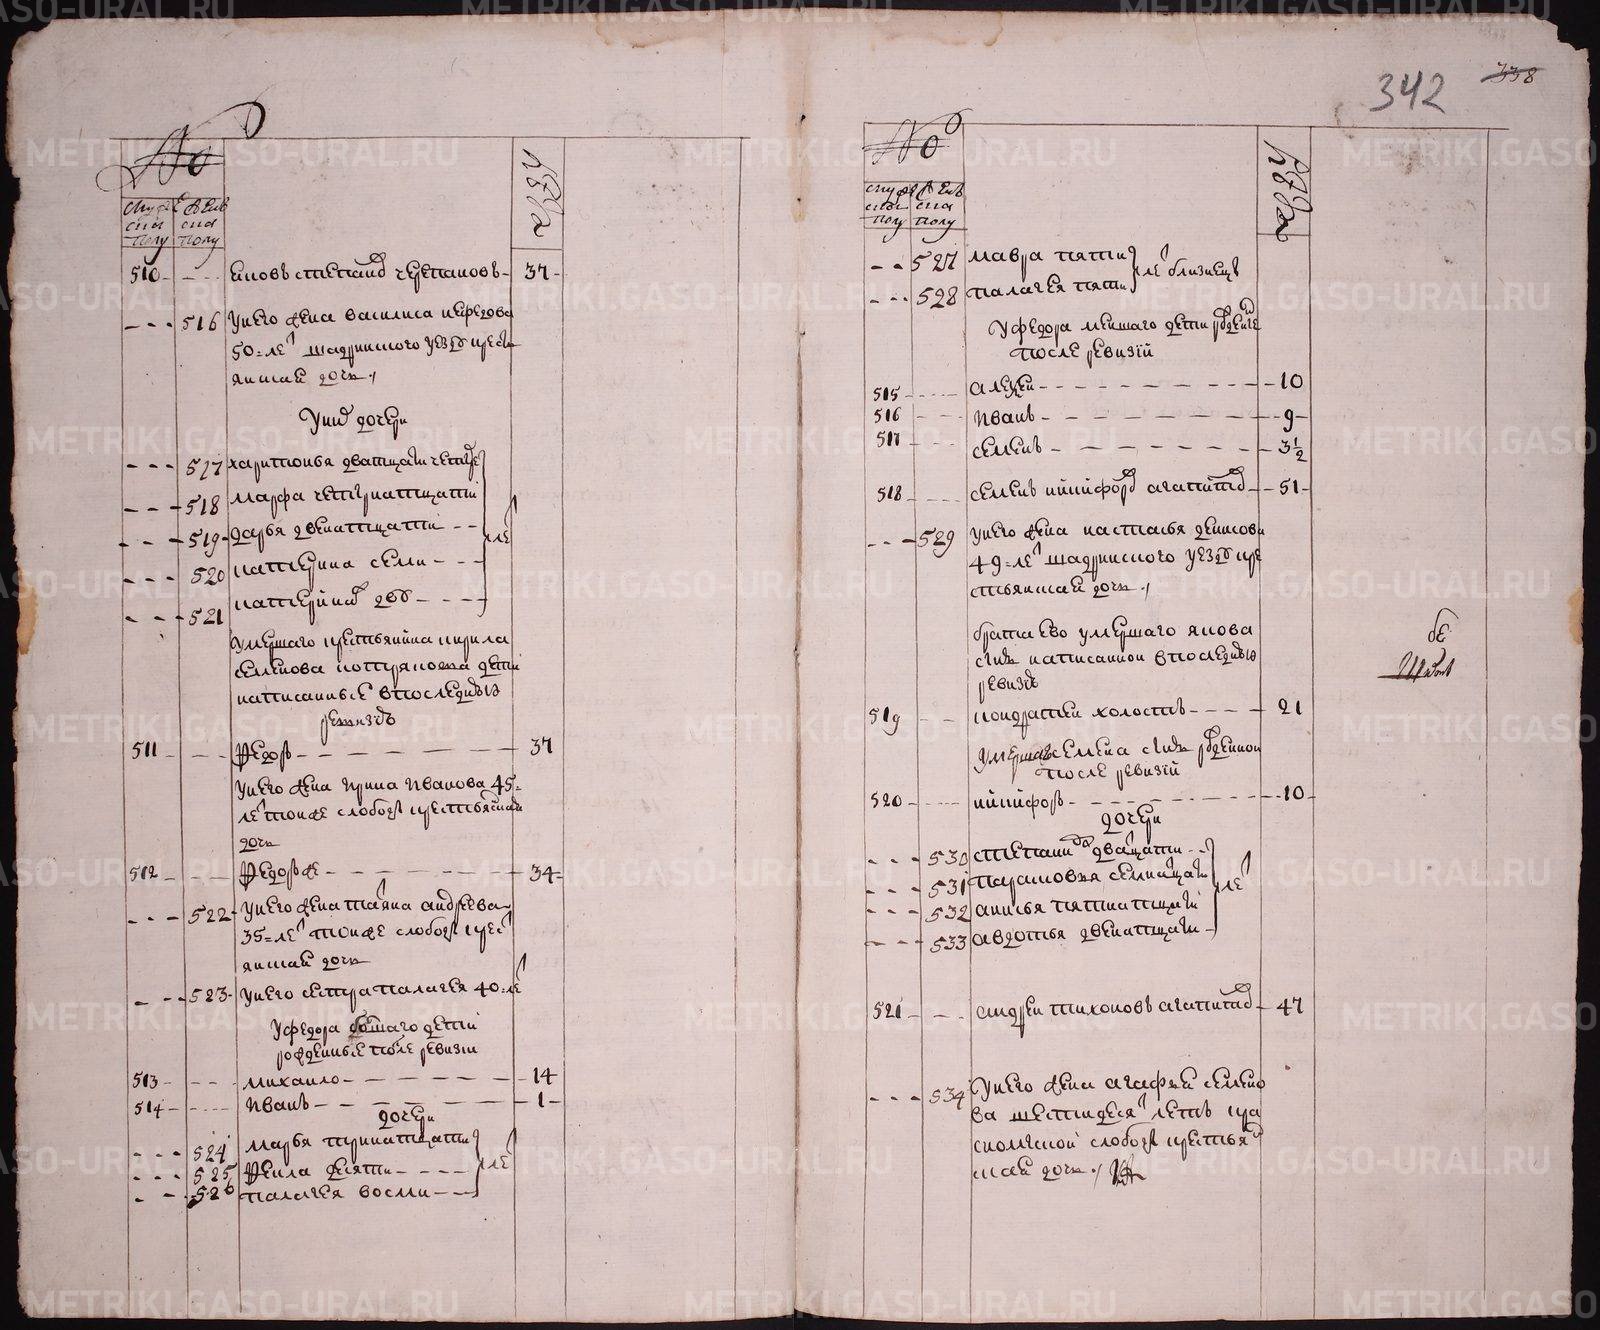 342
338
№
мужеска полу
женска полу
лета
510 яковъ степановъ черепановъ 37
516 унего жена василиса нефедова
50 летъ шадринского уезда кресть
янская дочь
унихъ дочери
517 харитонья дватцати четырехъ
518 марфа четырнатцати
519 дарья двенатцати
летъ
520 катерина семи
521 катерина же двухъ
умершаго крестьянина кирила
семенова дети
написанные впоследнюю
ревизию
511 Федоръ 37
унего жена ирина иванова 45
летъ тойже слободы крестьянская
дочь
512 Федоръ же 34
522 унего жена татьяна андреева
35 летъ тойже слободы крест
янская дочь
523 унего сестра палагея 40 летъ
уфедора большаго дети
рожденные после ревизии
513 михаило 14
514 иванъ 1
дочери
524 марья тринатцати
525 Фекла десяти
летъ
526 палагея восми
№
мужеска полу
женска полу
лета
527 мавра пяти
летъ близнецы
528 палагея пяти
уфедора меншаго дети рожденные
после ревизии
515 алексей 10
516 иванъ 9
517 семенъ 3 1/2
518 семенъ никифоровъ агапитовъ 51
529 унего жена настасья денисова
49 летъ шадринского уезда кре
стьянская дочь
брата ево умершаго якова
сынъ написанной впоследнюю
ревизию
519 кондратей холостъ 21
умершаго семена сынъ рожденной
после ревизии
520 никифоръ 10
дочери
530 степанида дватцати
531 парасковья семнатцати
летъ
532 анисья пятнатцати
533 авдотья двенатцати
521 андрей тихоновъ агапитовъ 47
534 унего жена агафья семено
ва шестидесятъ летъ кра
сномыской слободы крестьян
ская дочь